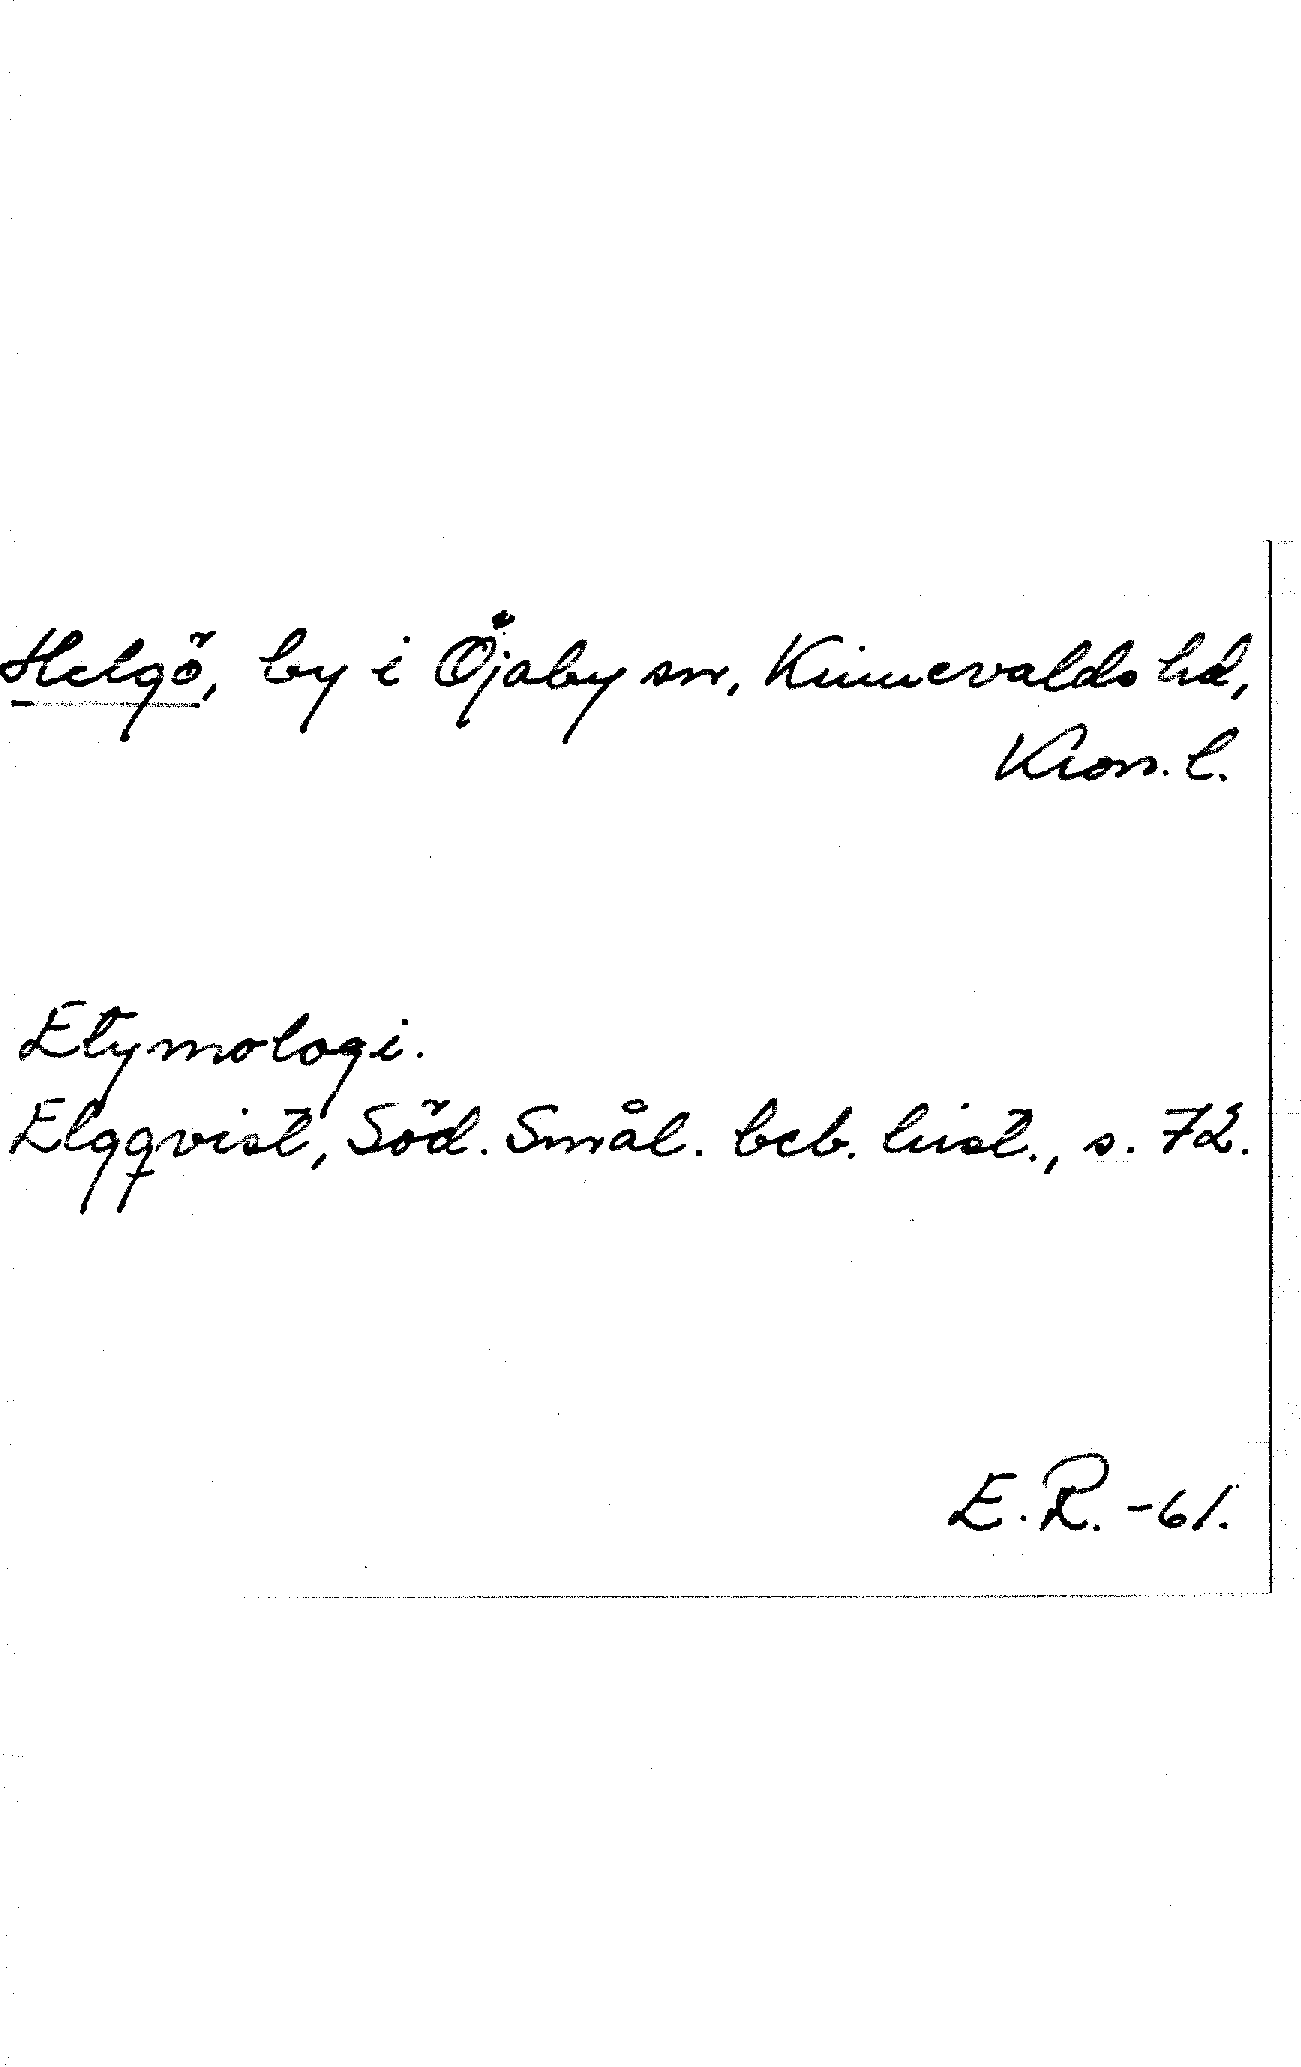 Helgö, by i Öjaby sn, Kinnevalds hd,
Kron. l.
Etymologi.
Elgqvist, Söd. Smål. beb. hist., s. 72.
E. R. -61.